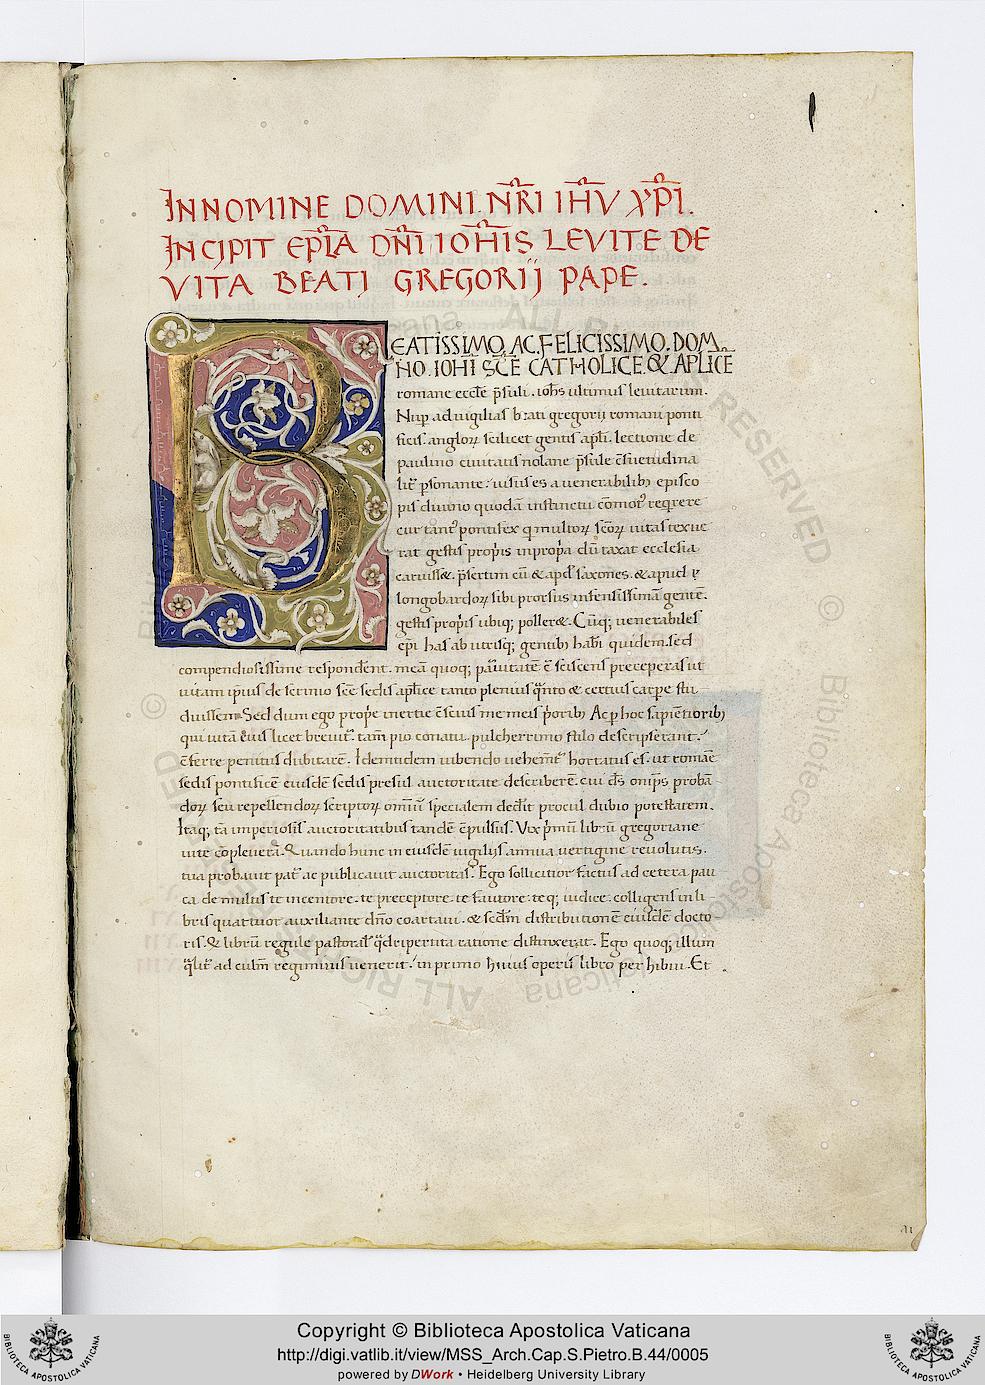 IN NOMINE DOMINI NR̄I IHV̄ XP̄I.
INCIPIT EPL̄A DN̄I IOHIS̄ LEVITE DE
VITA BEATI GREGORIJ PAPE.
BEATISSIMO, AC. FELICISSIMO. DOM
NO. IOHI SCĒ CATHOLICE. & APLICE
romane eccłe p̄suli. ioħs ultimus leuitarum.
Nup̱ ad uigilias beati gregorii romani ponti
ficis. angloꝝ scilicet gentis apłi. lectione de
paulino ciuitatis nolane p̄sule c̄suetudina
lit̄ p̱sonante: uisus es a uenerabilibꝫ episco
pis diuino quodā instinctu cōmot᷒ reqrere
cur tant᷒ pontifex q multoꝝ sc̄oꝝ uitas texue
rat gestis propriis in propria dū taxat ecclesia
caruisset. p̄sertim cū & apd̄ saxones. & apud
longobardoꝝ sibi prorsus infensissimā gentē.
gestis propriis ubiqꝫ polleret. Cūqꝫ uenerabiles
ep̄i has ab utrisqꝫ gentibꝫ habi quidem. sed
compendiosissime responderent. meā quoqꝫ paruitatē sciscens preceperas ut
uitam ipsius de scrinio scē sedis aplice tanto plenius qnto & certius carpe stu
duissem. Sed dum ego prope inertie c̄scius me meis prioribꝫ Ac p̱ hoc sapientioribꝫ
qui uitā eius licet breuit̄. tam̄ pio conatu. pulcherrimo stilo descripserant.
c̄ferre penitus dubitarē. Identidem iubendo uehemt̄ hortatus es. ut romanē
sedis pontificē eiusdē sedis presul. auctoritate describerē. cui ds̄ omp̄s probā
doꝝ seu repellendoꝝ scriptoꝝ omniū specialem dedit procul dubio potestatem.
Itaqꝫ tā imperiosis auctoritatibus tandē c̄pulsus. Vix primū librū gregoriane
uite cōpleuerā. Quando hunc in eiusdē uigilijs annua uertigine reuolutis.
tua probauit pat᷒ ac publicauit auctoritas. Ego sollicitior factus ad cetera pau
ca de multis te incentore. te preceptore. te fautore. teqꝫ iudice. colligens in li
bris quattuor auxiliante dn̄o coartaui. & scdm̄ distributionē eiusdē docto
ris. & librū regule pastoral qdriperiita ratione distinxerat. Ego quoqꝫ illum
qlit̄ ad culm̄ regiminis uenerit. in primo huius operis libro perhibui. Et
BIBLIOTECA APOSTOLICA VATICANA
Copyright © Biblioteca Apostolica Vaticana
http://digi.vatlib.it/view/MSS_Arch.Cap.S.Pietro.B.44/0005
powered by DWork • Heidelberg University Library
BIBLIOTECA APOSTOLICA VATICANA